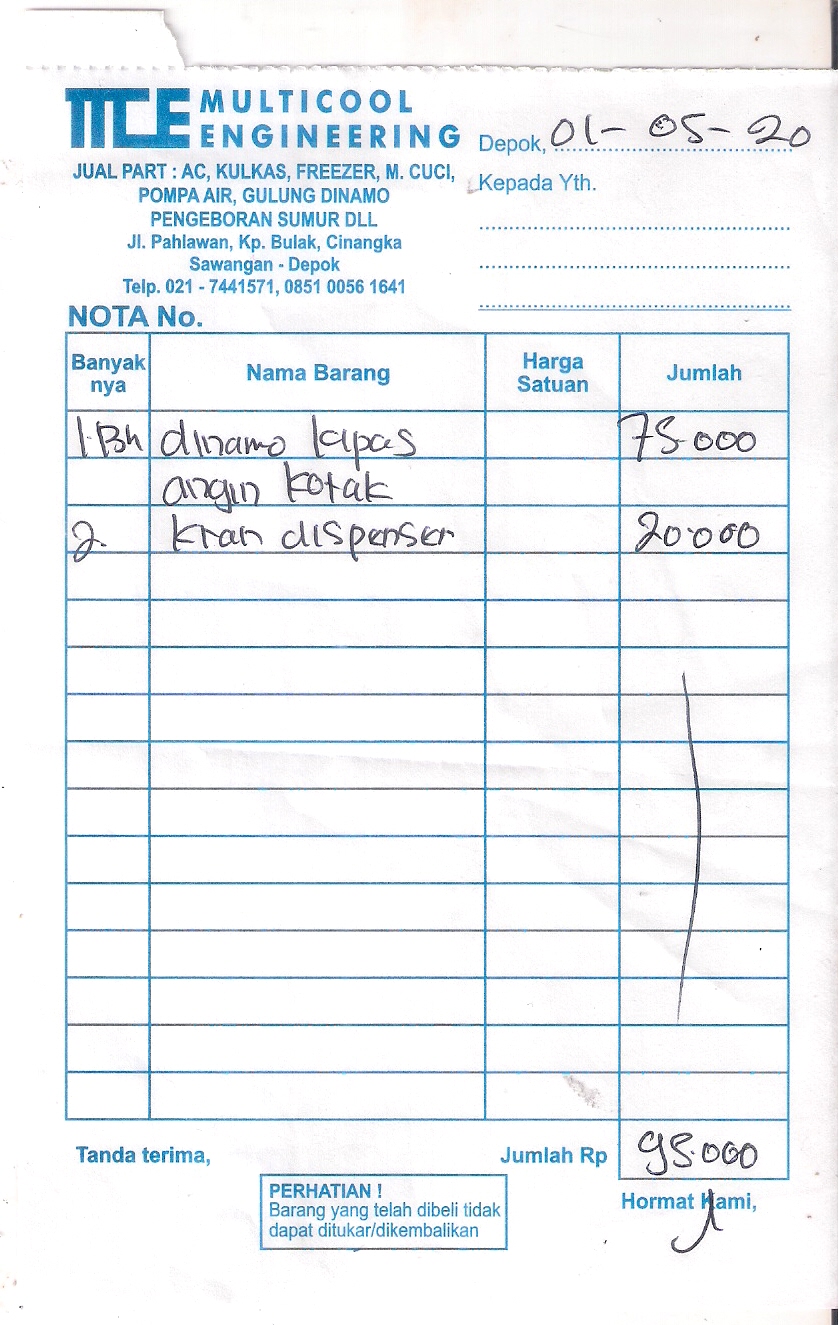 MCE MULTICOOL
ENGINEERING
JUAL PART : AC, KULKAS, FREEZER, M. CUCI,
POMPA AIR, GULUNG DINAMO
PENGEBORAN SUMUR DLL
Jl. Pahlawan, Kp. Bulak, Cinangka
Sawangan - Depok
Telp. 021 - 7441571, 0851 0056 1641
Depok, 01-05-20
Kepada Yth.
NOTA No.
Banyak nya Nama Barang Harga Satuan Jumlah
1.Bh dinamo kipas 75.000
angin kotak
2. kran dispenser 20.000
Tanda terima, Jumlah Rp 95.000
PERHATIAN !
Barang yang telah dibeli tidak
dapat ditukar/dikembalikan
Hormat Kami,